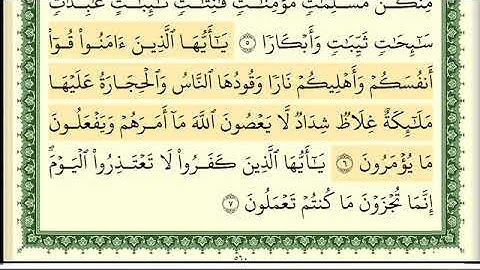 مِنكُنَّ مُسْلِمَٰتٍ مُّؤْمِنَٰتٍ قَٰنِتَٰتٍ تَٰٓئِبَٰتٍ عَٰبِدَٰتٍ
سَٰٓئِحَٰتٍ ثَيِّبَٰتٍ وَأَبْكَارًا ٥ يَٰٓأَيُّهَا ٱلَّذِينَ ءَامَنُوا۟ قُوٓا۟
أَنفُسَكُمْ وَأَهْلِيكُمْ نَارًا وَقُودُهَا ٱلنَّاسُ وَٱلْحِجَارَةُ عَلَيْهَا
مَلَٰٓئِكَةٌ غِلَاظٌ شِدَادٌ لَّا يَعْصُونَ ٱللَّهَ مَآ أَمَرَهُمْ وَيَفْعَلُونَ
مَا يُؤْمَرُونَ ٦ يَٰٓأَيُّهَا ٱلَّذِينَ كَفَرُوا۟ لَا تَعْتَذِرُوا۟ ٱلْيَوْمَ ۖ
إِنَّمَا تُجْزَوْنَ مَا كُنتُمْ تَعْمَلُونَ ٧
٥٦٠